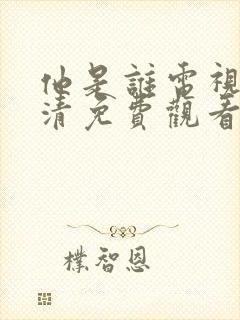 他是誰電視
清免費觀看
樸智恩